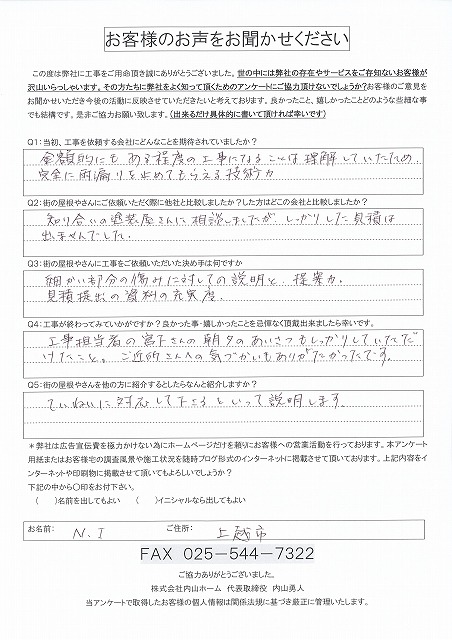 お客様のお声をお聞かせください
この度は弊社に工事をご用命頂き誠にありがとうございました。世の中には弊社の存在やサービスをご存知ないお客様が
沢山いらっしゃいます。その方たちに弊社をよく知って頂くためのアンケートにご協力頂けないでしょうか?お客様のご意見を
お聞かせいただき今後の活動に反映させていただきたいと考えております。良かったこと、嬉しかったことどのような些細な事
でも結構です。是非ご協力お願い致します。(出来るだけ具体的に書いて頂ければ幸いです)
Q1:当初、工事を依頼する会社にどんなことを期待されていましたか?
金額的にもある程度の工事になることは理解していたため、
完全に雨漏りを止めてもらえる技術力
Q2:街の屋根やさんにご依頼いただく際に他社と比較しましたか?した方はどこの会社と比較しましたか?
知り合いの塗装屋さんに相談しましたが、しっかりした見積は
出ませんでした。
Q3:街の屋根やさんに工事をご依頼いただいた決め手は何ですか
細かい部分の傷みに対しての説明と、提案力。
見積提出の資料の充実度。
Q4:工事が終わってみていかがですか?良かった事・嬉しかったことを忌憚なく頂戴出来ましたら幸いです。
工事担当者の宮下さんの朝夕のあいさつもしっかりしていただ
けたこと。ご近所さんへの気づかいもありがたかったです。
Q5:街の屋根やさんを他の方に紹介するとしたらなんと紹介しますか?
ていねいに対応して下さるといって説明します。
*弊社は広告宣伝費を極力かけない為にホームページだけを頼りにお客様への営業活動を行っております。本アンケート
用紙またはお客様宅の調査風景や施工状況を随時ブログ形式のインターネットに掲載させて頂いております。上記内容をイ
ンターネットや印刷物に掲載させて頂いてもよろしいでしょうか?
下記の中から〇印をお付下さい。
( )名前を出してもよい ( )イニシャルなら出してもよい
お名前: N.I ご住所: 上越市
FAX 025-544-7322
ご協力ありがとうございました。
株式会社内山ホーム 代表取締役 内山勇人
当アンケートで取得したお客様の個人情報は関係法規に基づき厳正に管理いたします。